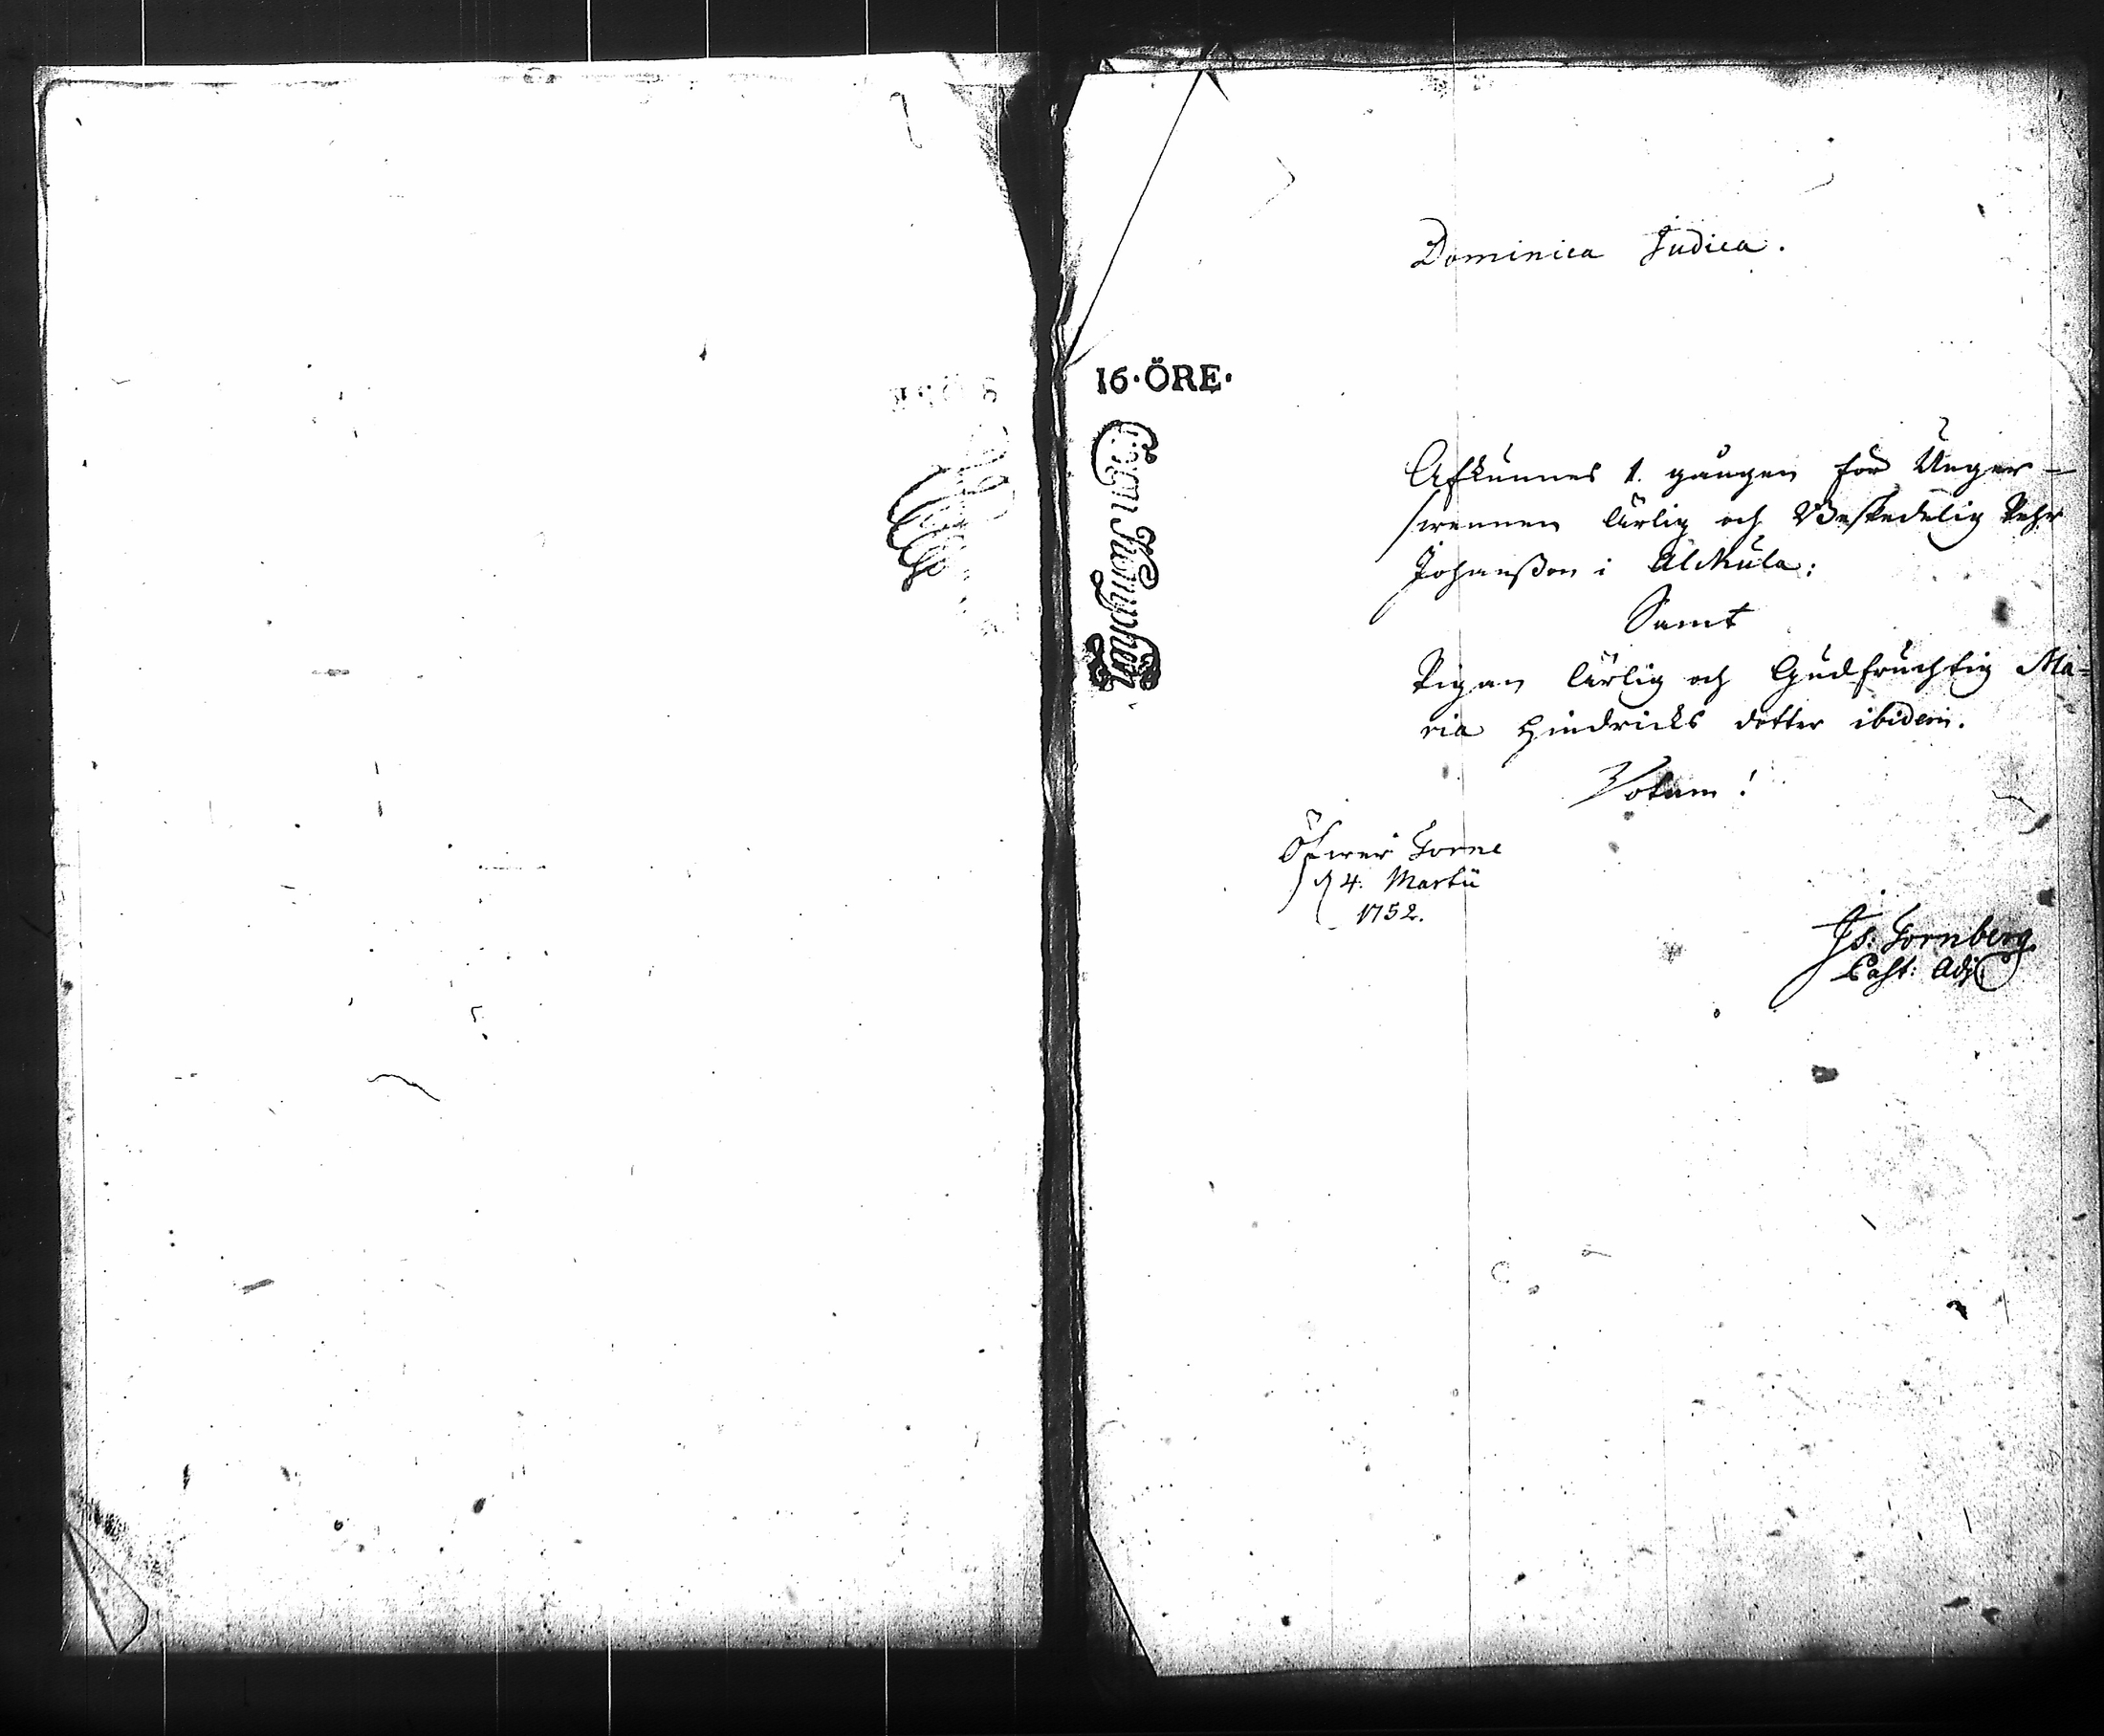 Dominica Judica.
16·ÖRE·
Afkunnes 1. gången för Unger-
swennen ärlig och Beskedelig Pehr
Johanßon i Alkkula:
Samt
Pigan ärlig och Gudfruchtig Ma=
ria Hindricks dotter ibidem.
Votum!
Öfwer Torne
d 4. Martii
1752.
Is. Tornberg
Past: Adj